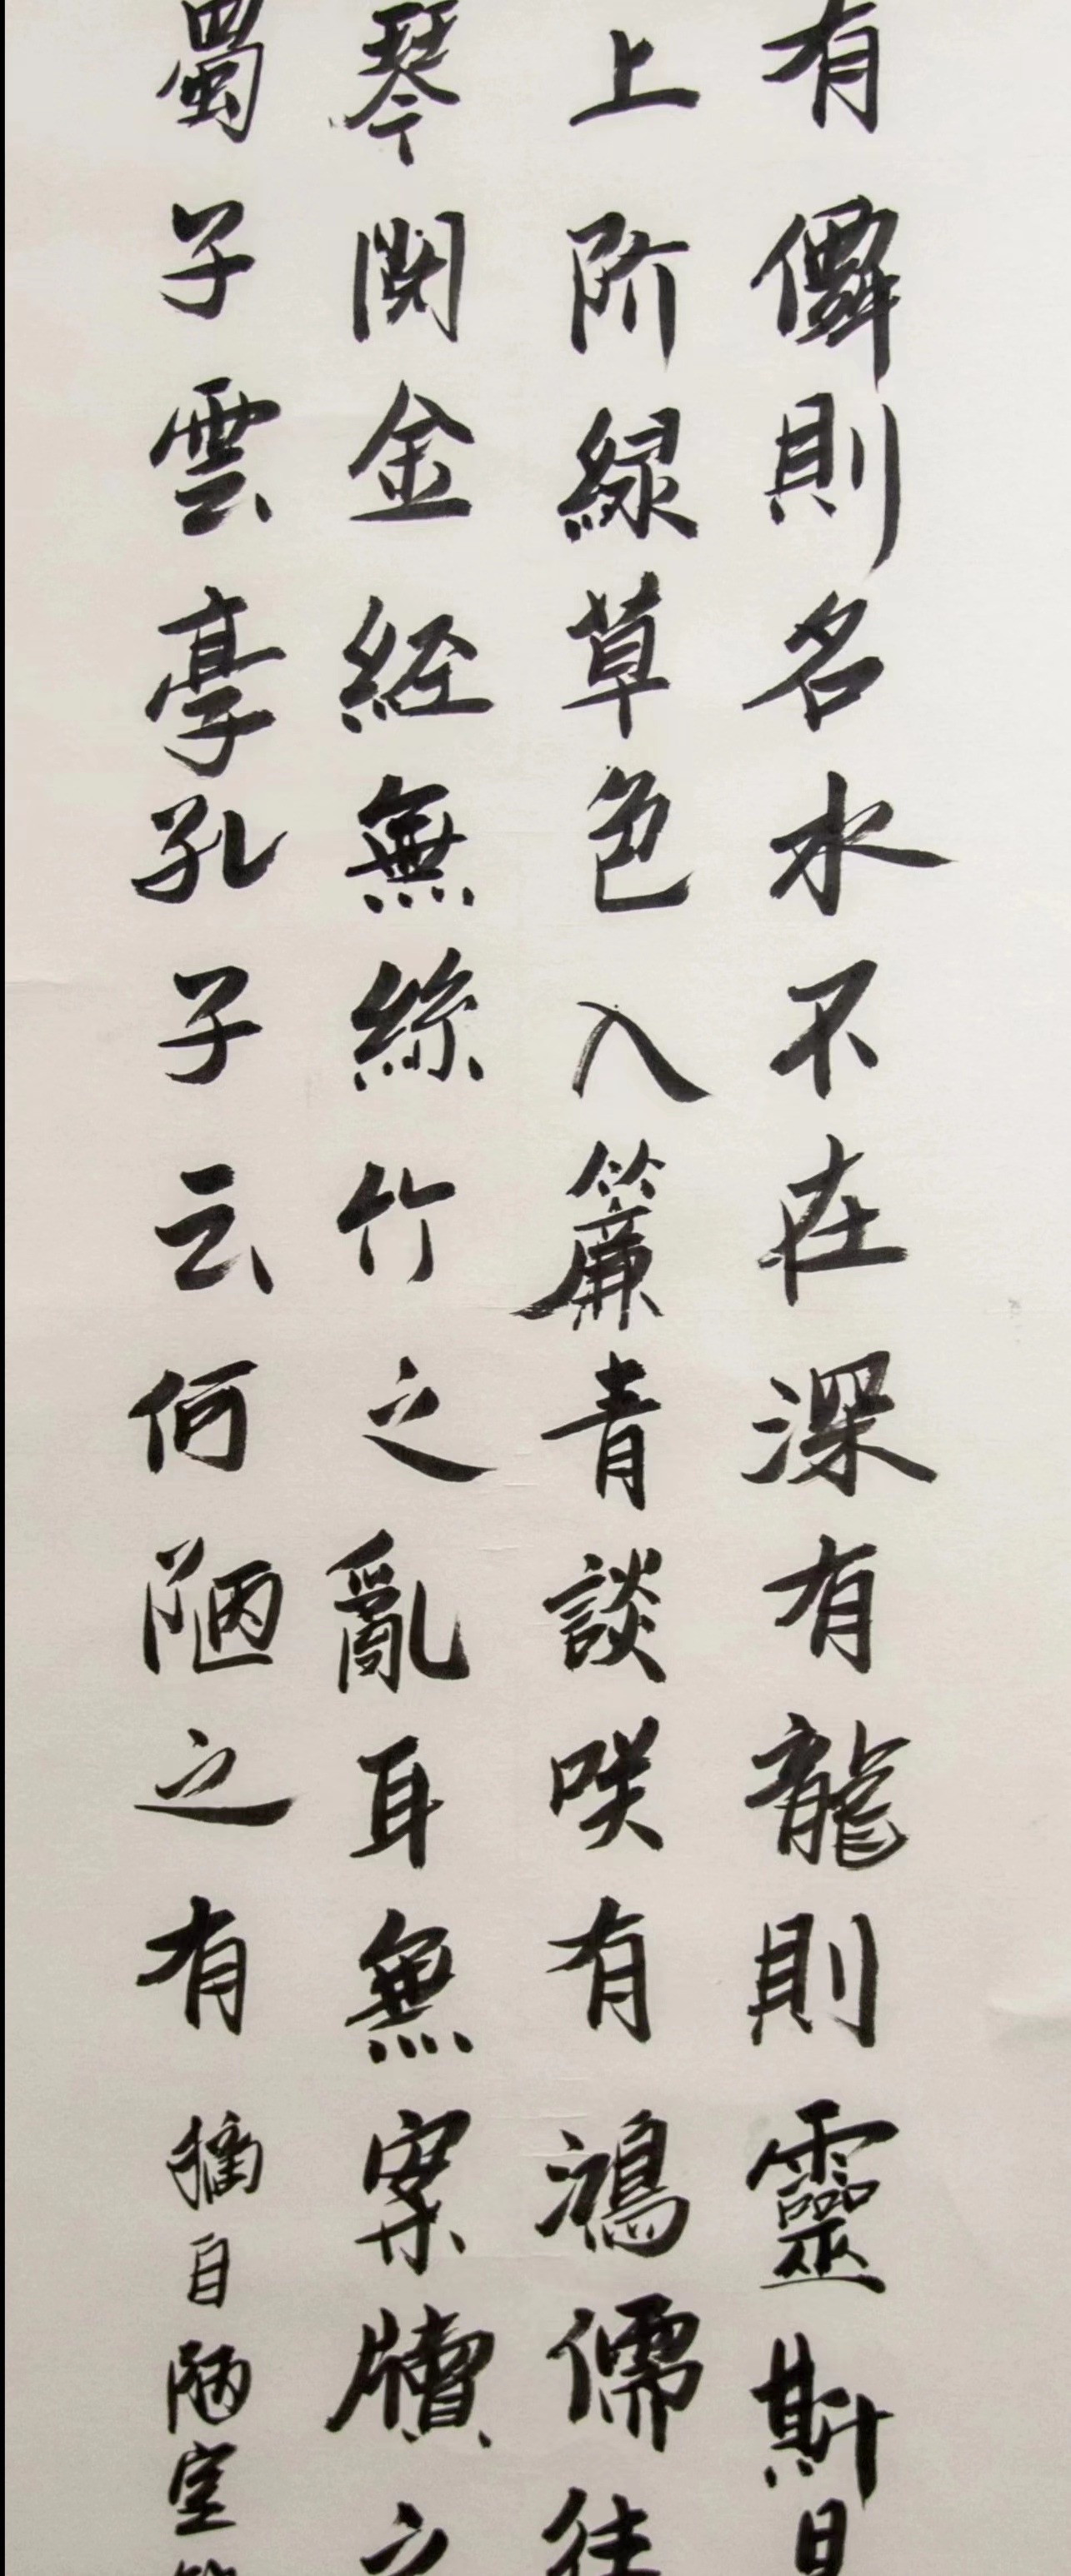 有僊則名水不在深有龍則靈斯是
上阶綠草色入簾青談咲有鴻儒往
琴閱金經無絲竹之亂耳無案牘之
蜀子雲亭孔子云何陋之有
摘自陋室